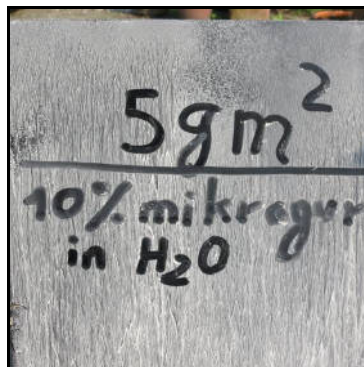 5gm²
10% mikrogur
in H₂O